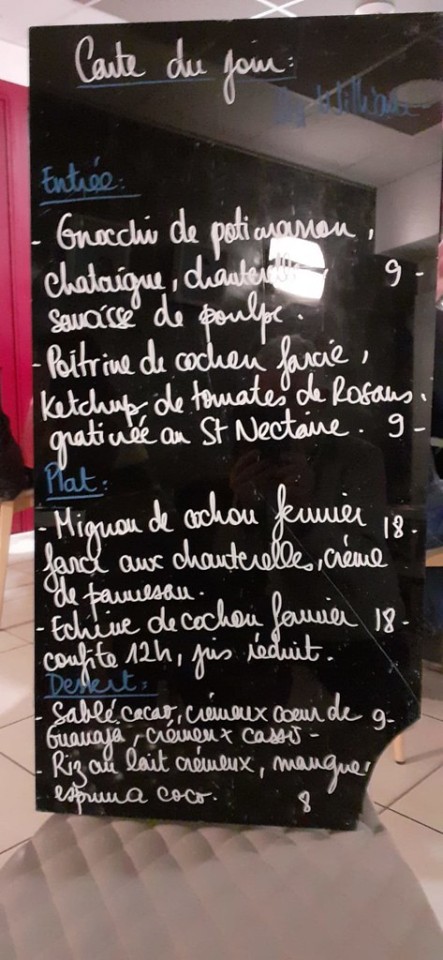 Carte du jour:
By William
Entrée:
- Gnocchi de potimarron,
chataigne, chanterelle, 9-
saucisse de poulpe.
- Poitrine de cochon farcie,
Ketchup de tomates de Rosans,
gratinée au St Nectaire. 9-
Plat:
- Mignon de cochon fermier 18-
farci aux chanterelles, crème
de parmesan.
- Echine de cochon fermier 18-
confite 12h, jus réduit.
Dessert:
- Sablé cacao, crémeux coeur de 9-
Guanaja, crémeux cassis -
- Riz au lait crémeux, mangue,
espuma coco. 8